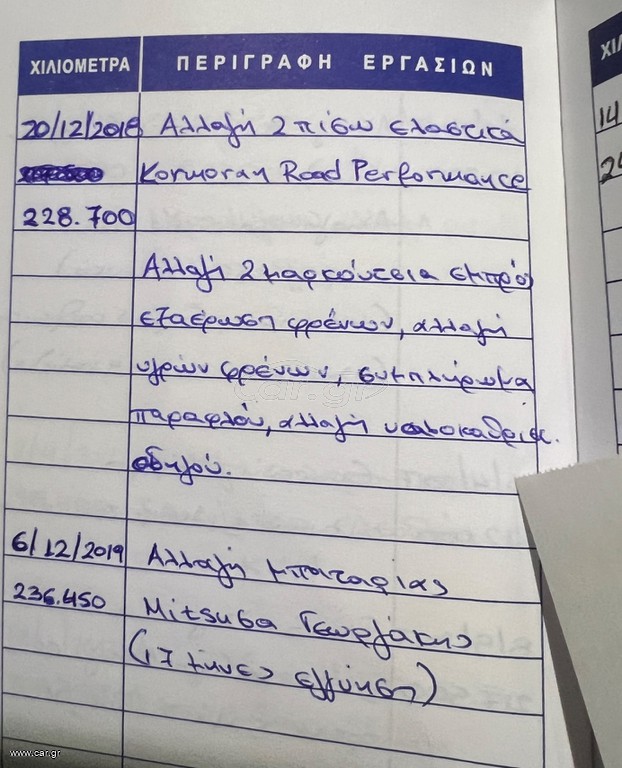 ΧΙΛΙΟΜΕΤΡΑ ΠΕΡΙΓΡΑΦΗ ΕΡΓΑΣΙΩΝ
20/12/2018 Αλλαγή 2 πίσω ελαστικά
Kormoran Road Performance
228.700
Αλλαγή 2 μαρκούτσια εμπρό
εξαέρωση φρένων, αλλαγή
υγρών φρένων, συμπλήρωμα
παραφλού, αλλαγή υαλοκαθρισ.
οδηγού.
6/12/2019 Αλλαγή μπαταρίας
236.450 Mitsuba Γεωργάκης
(17 μήνες εγγύηση)
ΧΙ
14
www.car.gr